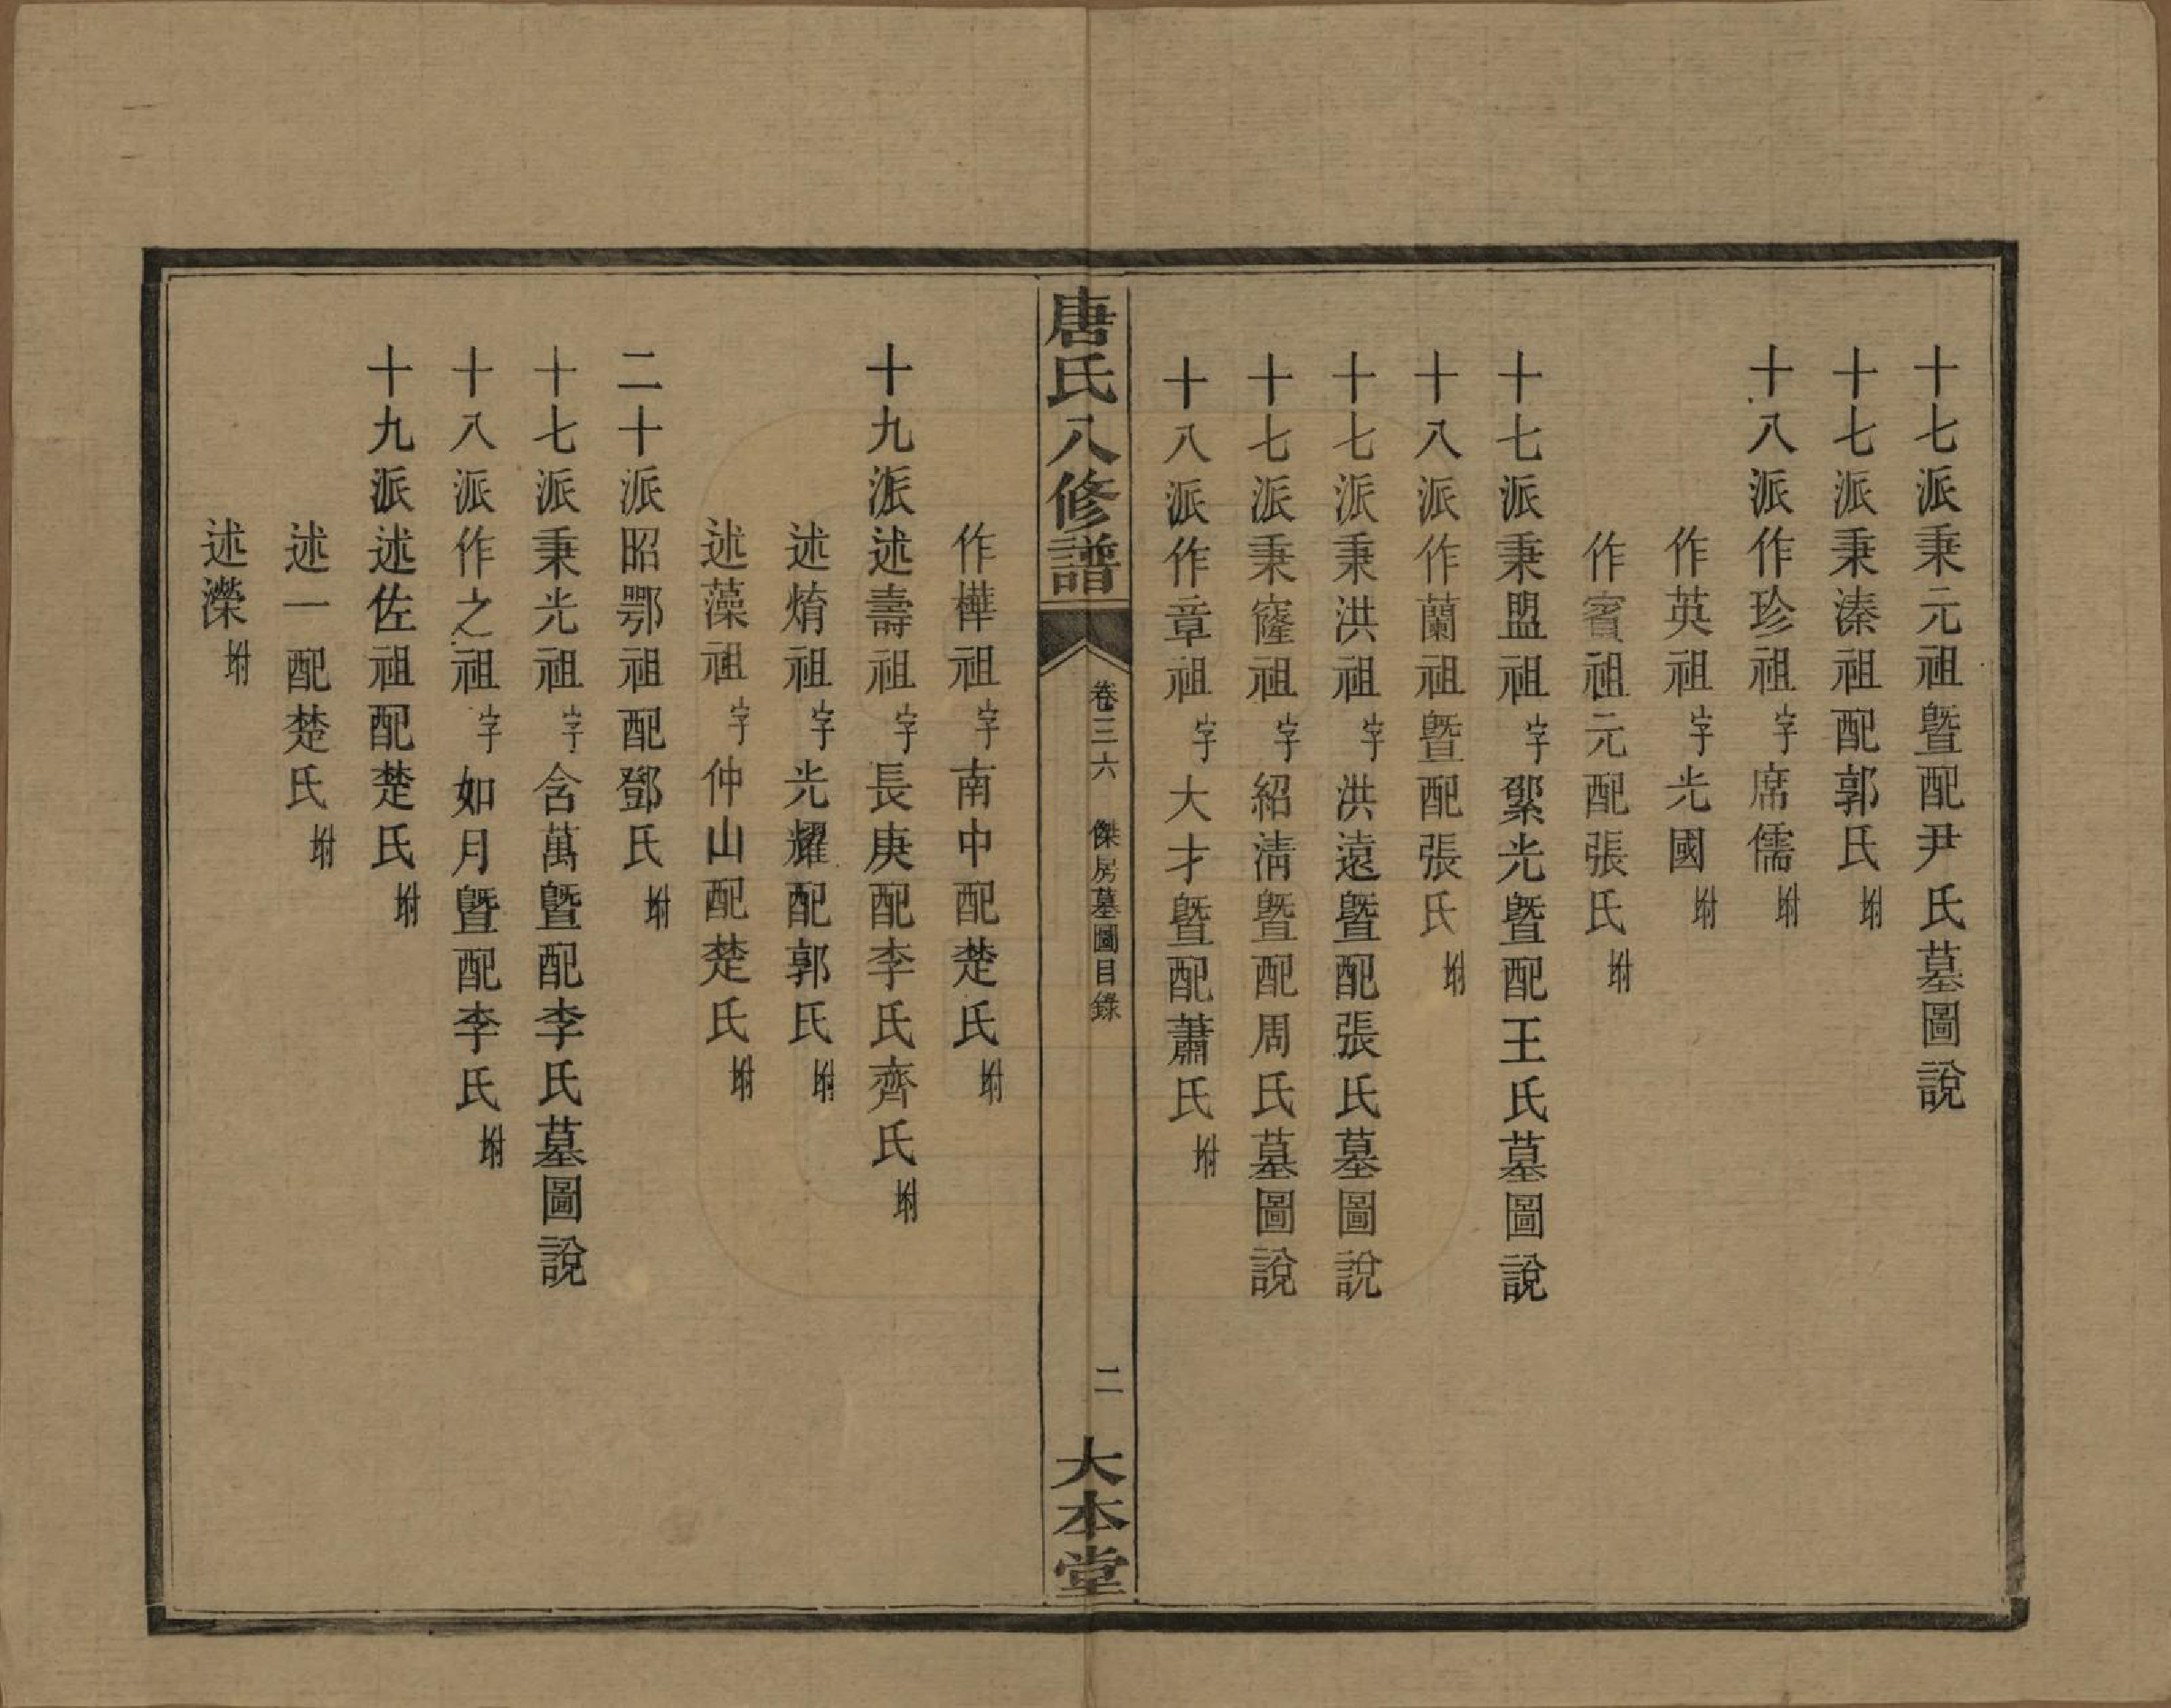 十七派秉元祖暨配尹氏墓圖說
十七派秉溱祖配郭氏附
十八派作珍祖字席儒附
作英祖字光國附
作賓祖元配張氏附
十七派秉盟祖字縏光暨配王氏墓圖說
十八派作蘭祖暨配張氏附
十七派秉洪祖字洪遠暨配張氏墓圖說
十七派秉窿祖字紹淸暨配周氏墓圖說
十八派作章祖字大才暨配蕭氏附
唐氏八修譜
卷三六 傑房墓圖目錄
二
大本堂
作樺祖字南中配楚氏附
十九派述壽祖字長庚配李氏齊氏附
述焴祖字光耀配郭氏附
述藻祖字仲山配楚氏附
二十派昭鄂祖配鄧氏附
十七派秉光祖字含萬暨配李氏墓圖說
十八派作之祖字如月暨配李氏附
十九派述佐祖配楚氏附
述一配楚氏附
述濼附